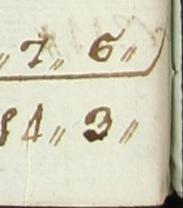 〃 7 〃 6 〃
84 〃 3 〃